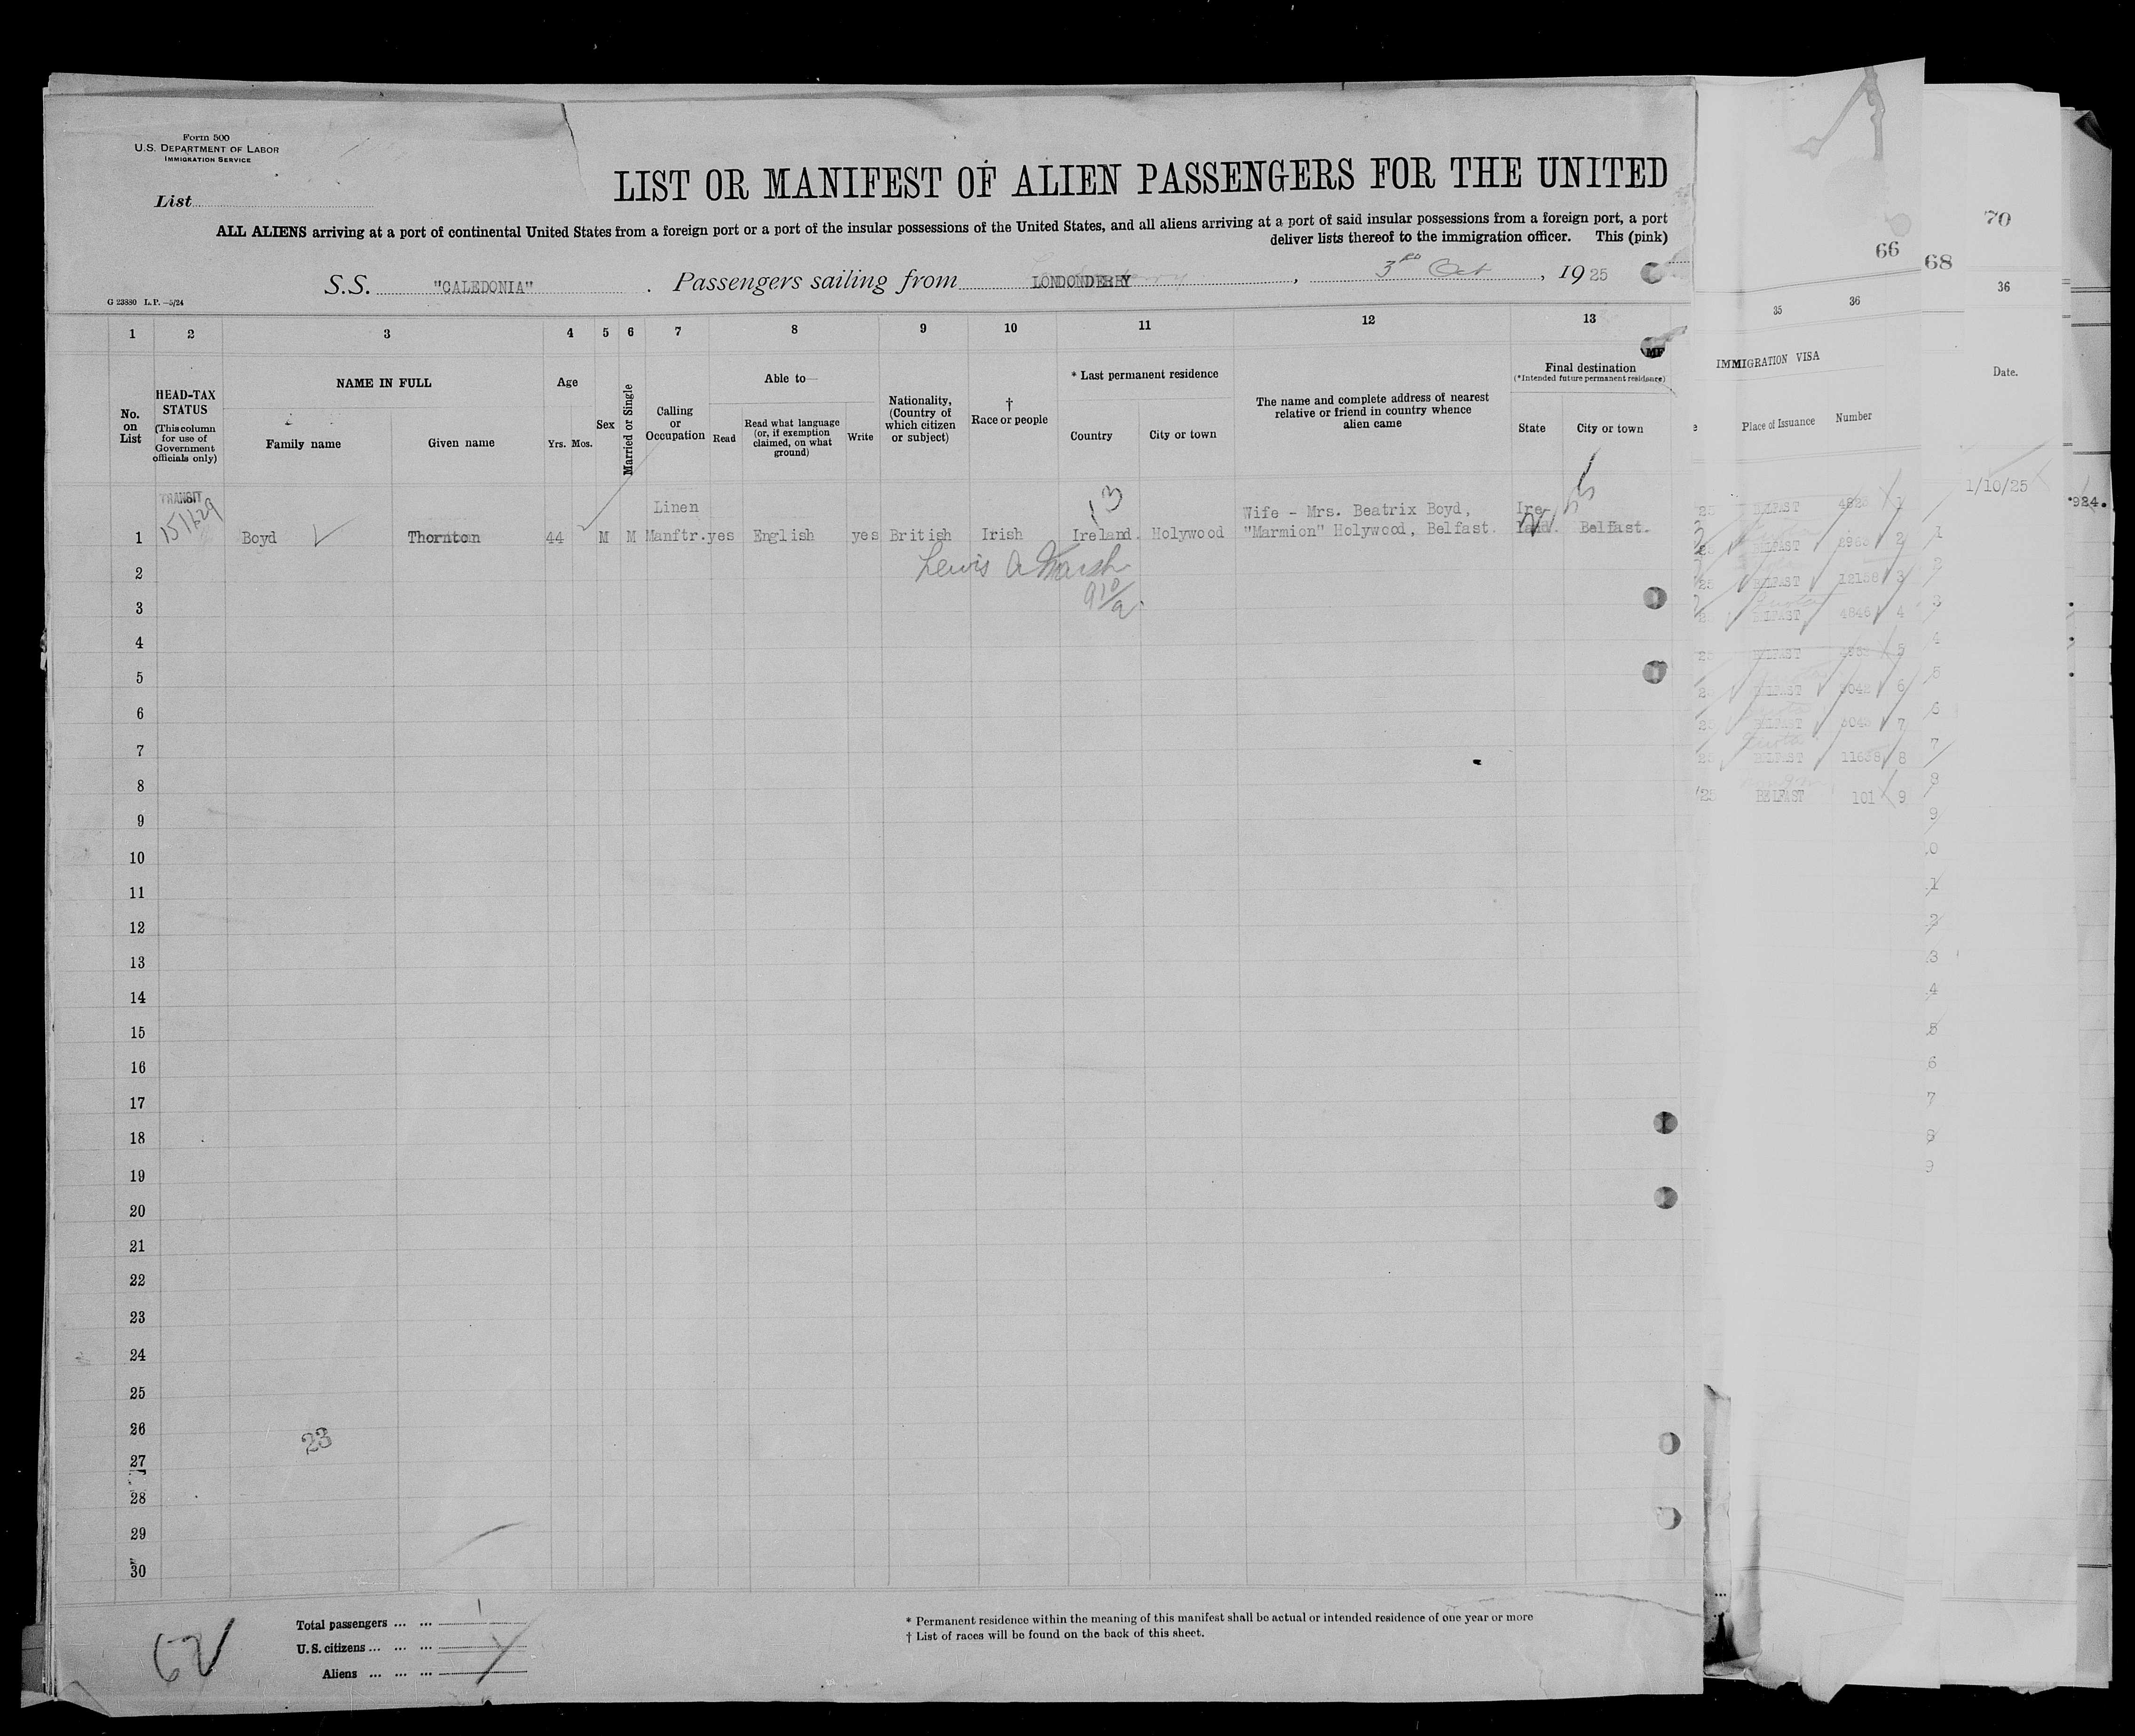 Form 500
U.S. DEPARTMENT OF LABOR
IMMIGRATION SERVICE
List
LIST OR MANIFEST OF ALIEN PASSENGERS FOR THE UNITED
ALL ALIENS arriving at a port of continental United States from a foreign port or a port of the insular possessions of the United States, and all aliens arriving at a port of said insular possessions from a foreign port, a port
deliver lists thereof to the immigration officer. This (pink)
S.S. "CALEDONIA" . Passengers sailing from LONDONDERRY , 3rd Oct , 1925
G 23880 L.P. —5/24
1 2 3 4 5 6 7 8 9 10 11 12 13
No. on List
HEAD-TAX STATUS
(This column for use of Government officials only)
NAME IN FULL
Family name
Given name
Age
Yrs. Mos.
Sex
Married or Single
Calling or Occupation
Able to—
Read
Read what language (or, if exemption claimed, on what ground)
Write
Nationality, (Country of which citizen or subject)
† Race or people
* Last permanent residence
Country
City or town
The name and complete address of nearest relative or friend in country whence alien came
Final destination
(*Intended future permanent residence)
State
City or town
MF
TRANSIT
13
Linen
Wife - Mrs. Beatrix Boyd, Ire-
1 Boyd Thornton 44 M M Manftr. yes English yes British Irish Ireland. Holywood "Marmion" Holywood, Belfast. land. Belfast.
2 Lewis A Marsh
3
4
5
6
7
8
9
10
11
12
13
14
15
16
17
18
19
20
21
22
23
24
25
26
23
27
28
29
30
62
Total passengers ... ... 1
U.S. citizens ... ... ...
Aliens ... ... ...
* Permanent residence within the meaning of this manifest shall be actual or intended residence of one year or more
† List of races will be found on the back of this sheet.
66
35 36
IMMIGRATION VISA
Place of Issuance Number
BELFAST 1
BELFAST 2
BELFAST 12158 3
BELFAST 4846 4
BELFAST 5
BELFAST 6
BELFAST 7
BELFAST 8
BELFAST 101 9
68
70
36
Date.
1/10/25